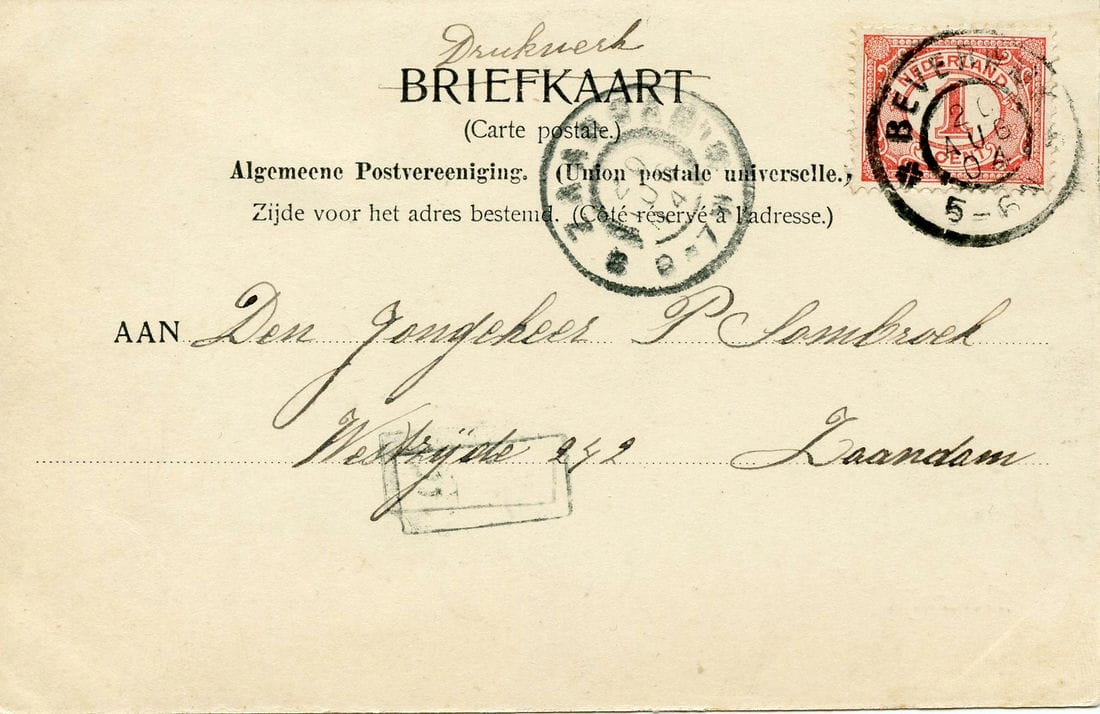 Drukwerk
BRIEFKAART
(Carte postale.)
Algemeene Postvereeniging. (Union postale universelle.)
Zijde voor het adres bestemd. (Côté réservé à l'adresse.)
NEDERLAND
1
CENT
BEVERWIJK
20
AUG
04
5-6
ZAANDAM
7-8
AAN Den Jongeheer P Sombroek
Westzijde 242 Zaandam